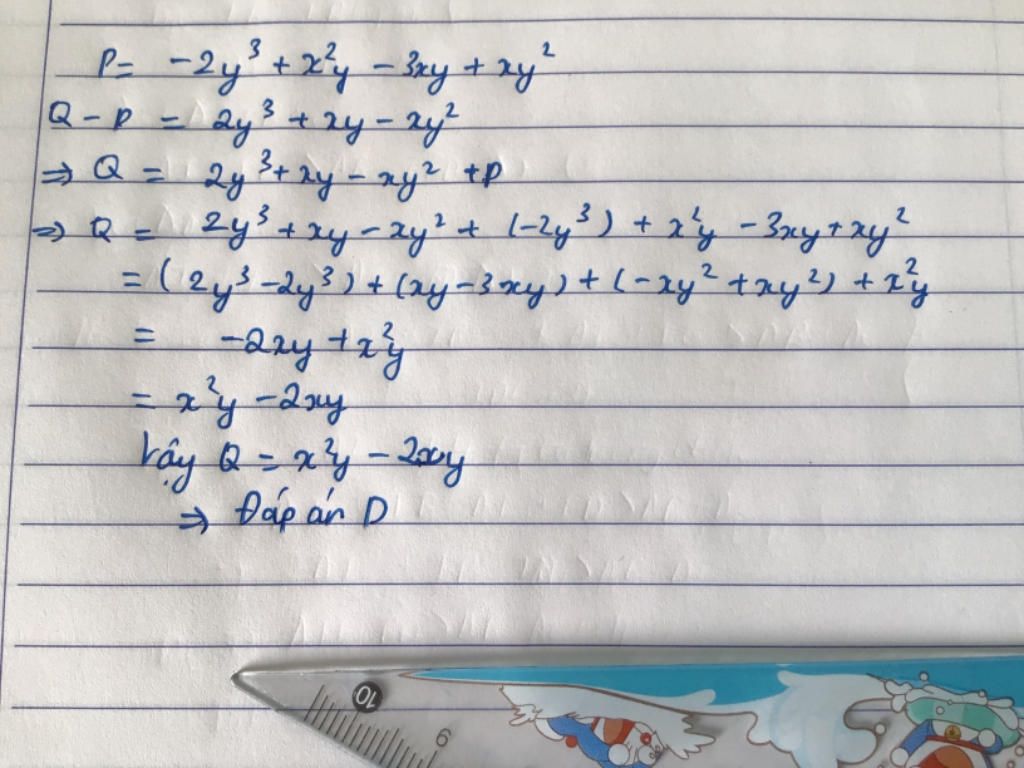 P = -2y³ + x²y - 3xy + xy²
Q - P = 2y³ + xy - xy²
⇒ Q = 2y³ + xy - xy² + P
⇒ Q = 2y³ + xy - xy² + (-2y³) + x²y - 3xy + xy²
= (2y³ - 2y³) + (xy - 3xy) + (-xy² + xy²) + x²y
= -2xy + x²y
= x²y - 2xy
Vậy Q = x²y - 2xy
⇒ Đáp án D
10
9